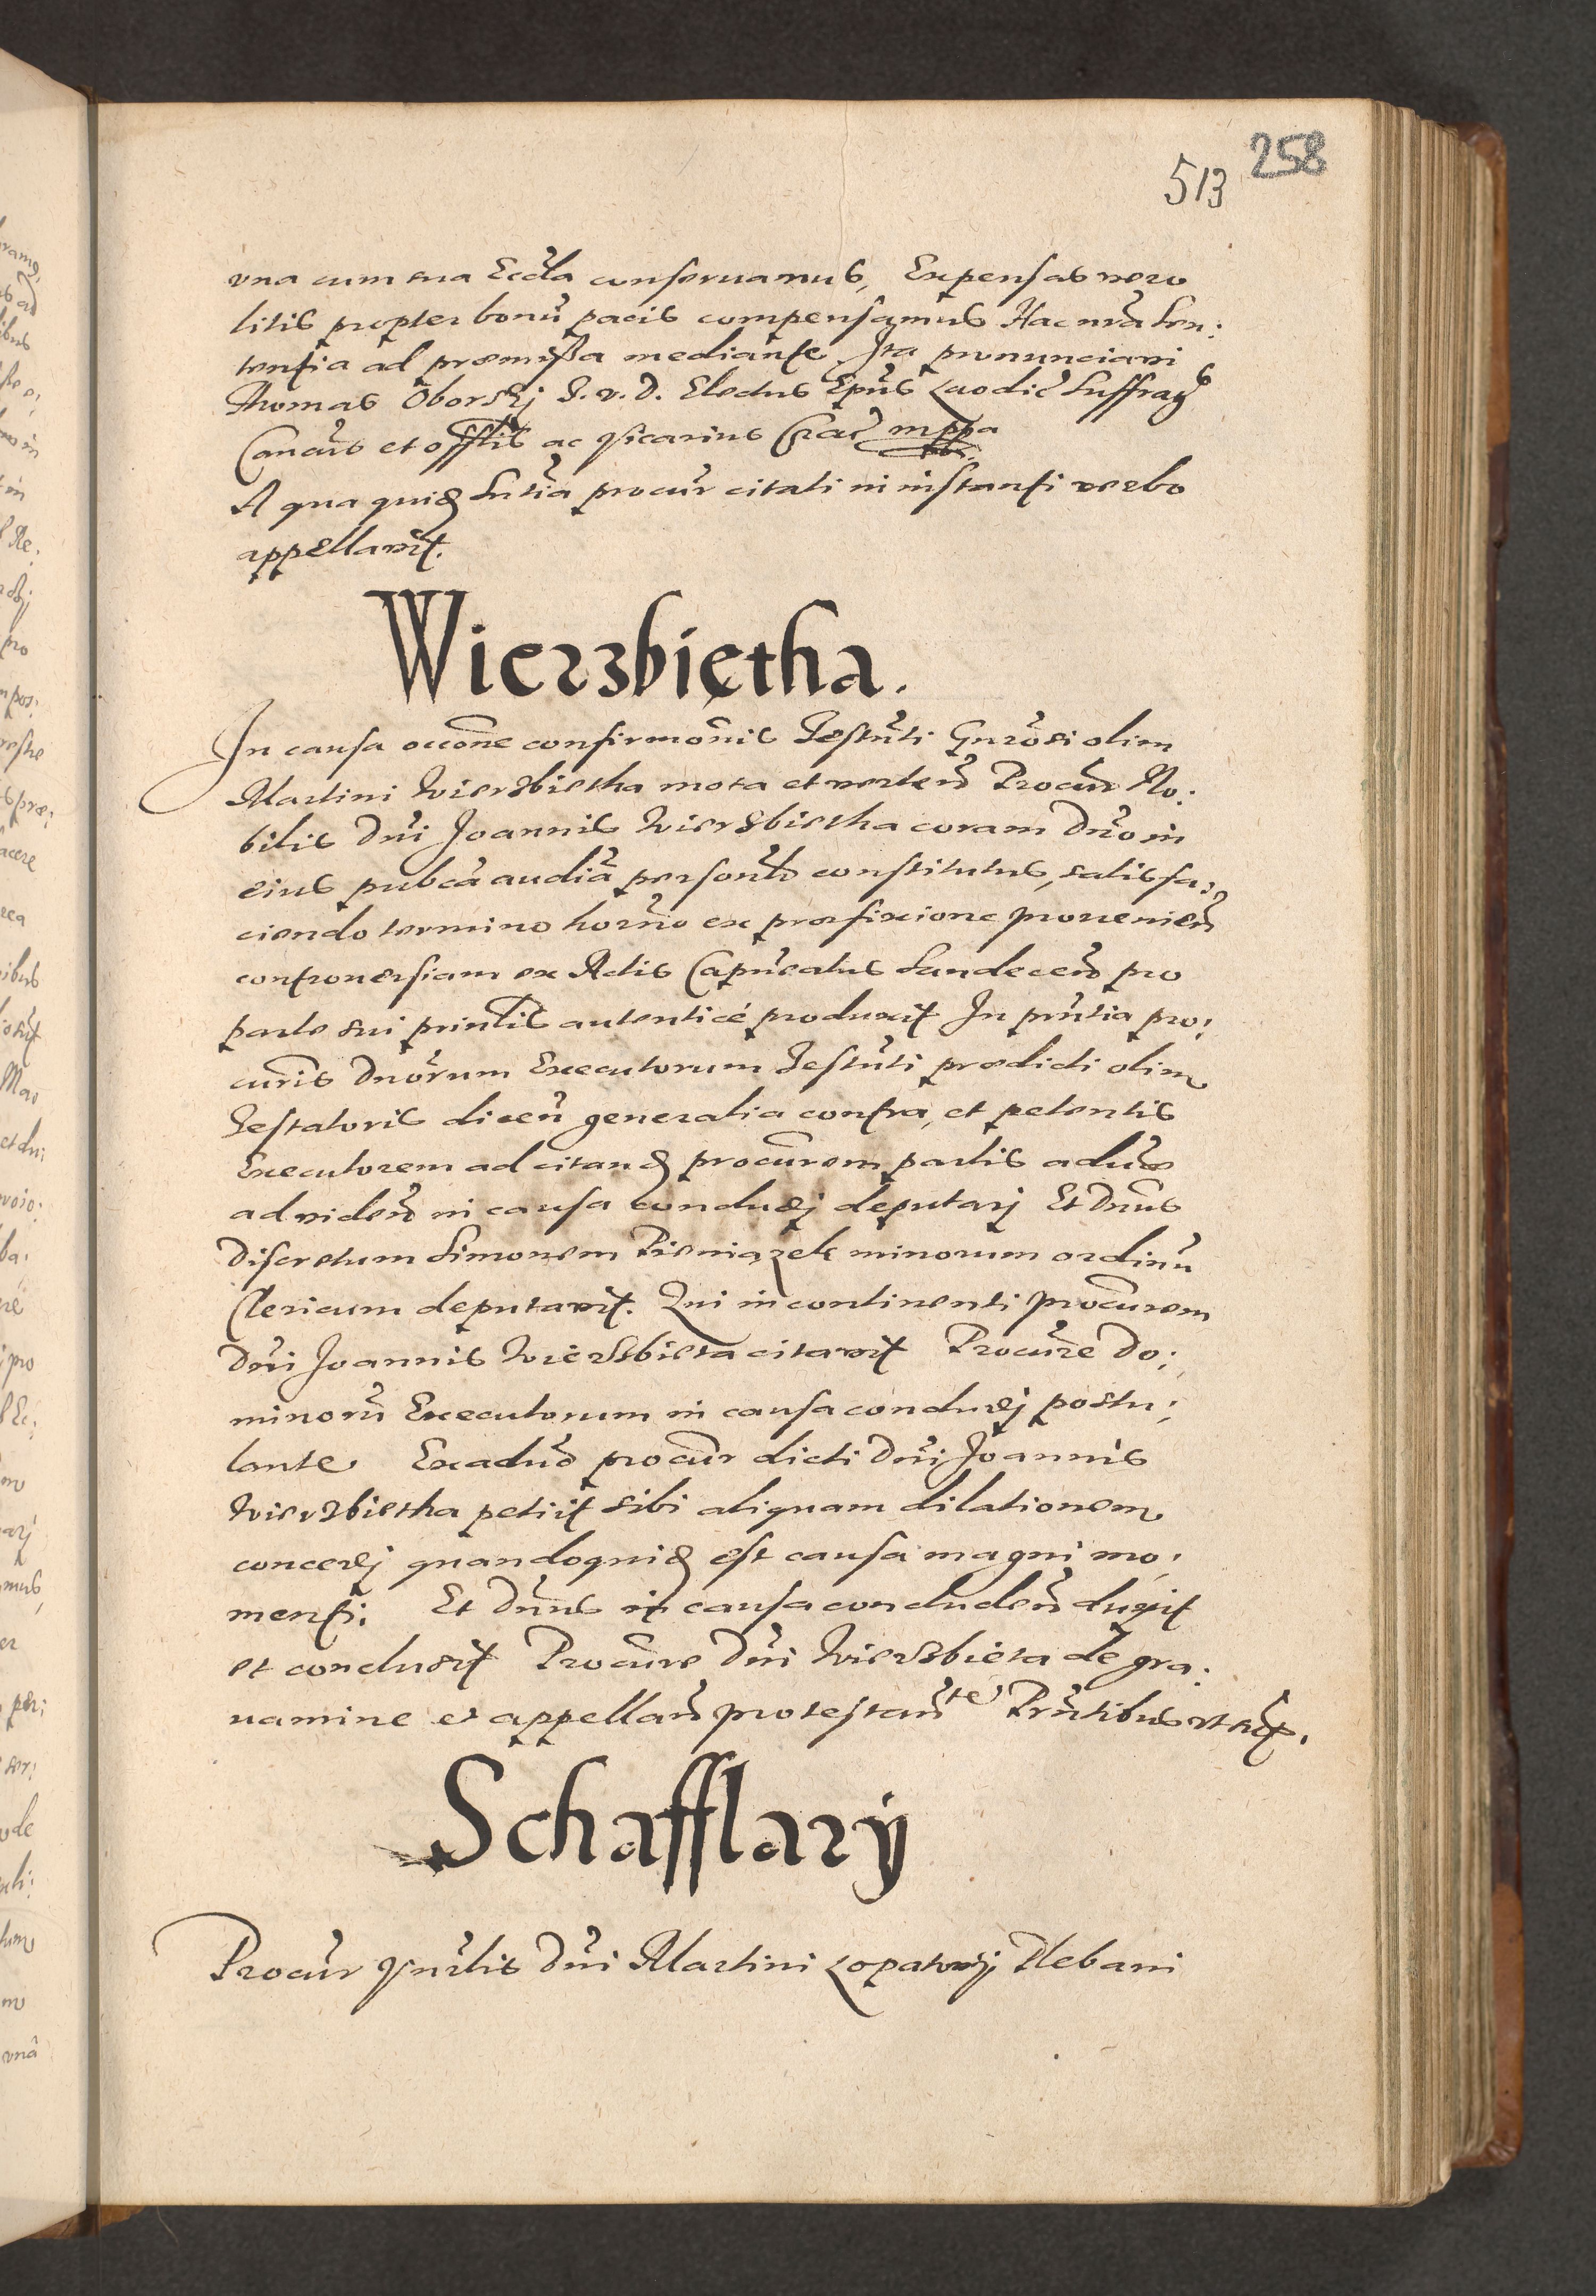 258
513
vna cum sua Eccła conseruamus, Expensas vero
litis propter bonũ pacis compensamus Hac nr̃a Sen:
tentia ad præmissa mediante. Ita pronunciaui
Thomas Oborskj I. v. D. Electus Epũs Laodic̃ Suffrag̃s
Canc̃us et offlis ac Vicarius Crac̃ mppa
A qua quid Snt̃ia procũr citati in instanti verbo
appellauit.
Wierzbiętha.
In causa occõne confirmõnis Testm̃ti Gnr̃osi olim
Martini Wierzbietha mota et verteñ Procũr No:
bilis Dñi Joannis Wierzbietha coram Dño in
eius pubca audiã personlr̃ constitutus, satisfa:
ciendo termino hor̃no ex præfixione proueneñ
controuersiam ex Actis Capñeatus Sandeceñ pro
parte sui prinlis autenticé produxit In prñtia pro:
curis Dnõrum Executorum Testm̃ti prædicti olim
Testatoris diceñ generalia contra, et petentis
Executorem ad citand procũrem partis aduer̃
ad videñ in causa concludj deputarj Et Dñus
Discretum Simonem Pieniązek minorum ordinũ
Clericum deputauit. Qui in continenti procũrem
Dñi Joannis Wierzbieta citauit Procũre Do:
minorũ Executorum in causa concludj postu:
lante Ex aduer̃ procũr dicti Dñi Joannis
Wierzbietha petiit sibi aliquam dilationem
concedj quandoquid est causa magni mo:
menti: Et Dñus in causa concludeñ duxit
et conclusit Procũre Dñi Wierzbieta de gra:
uamine et appellañ protestañte Prñtibus vt sũp.
Schafflarÿ
Procũr Vnr̃lis Dñi Martini Lopatowskj Plebani